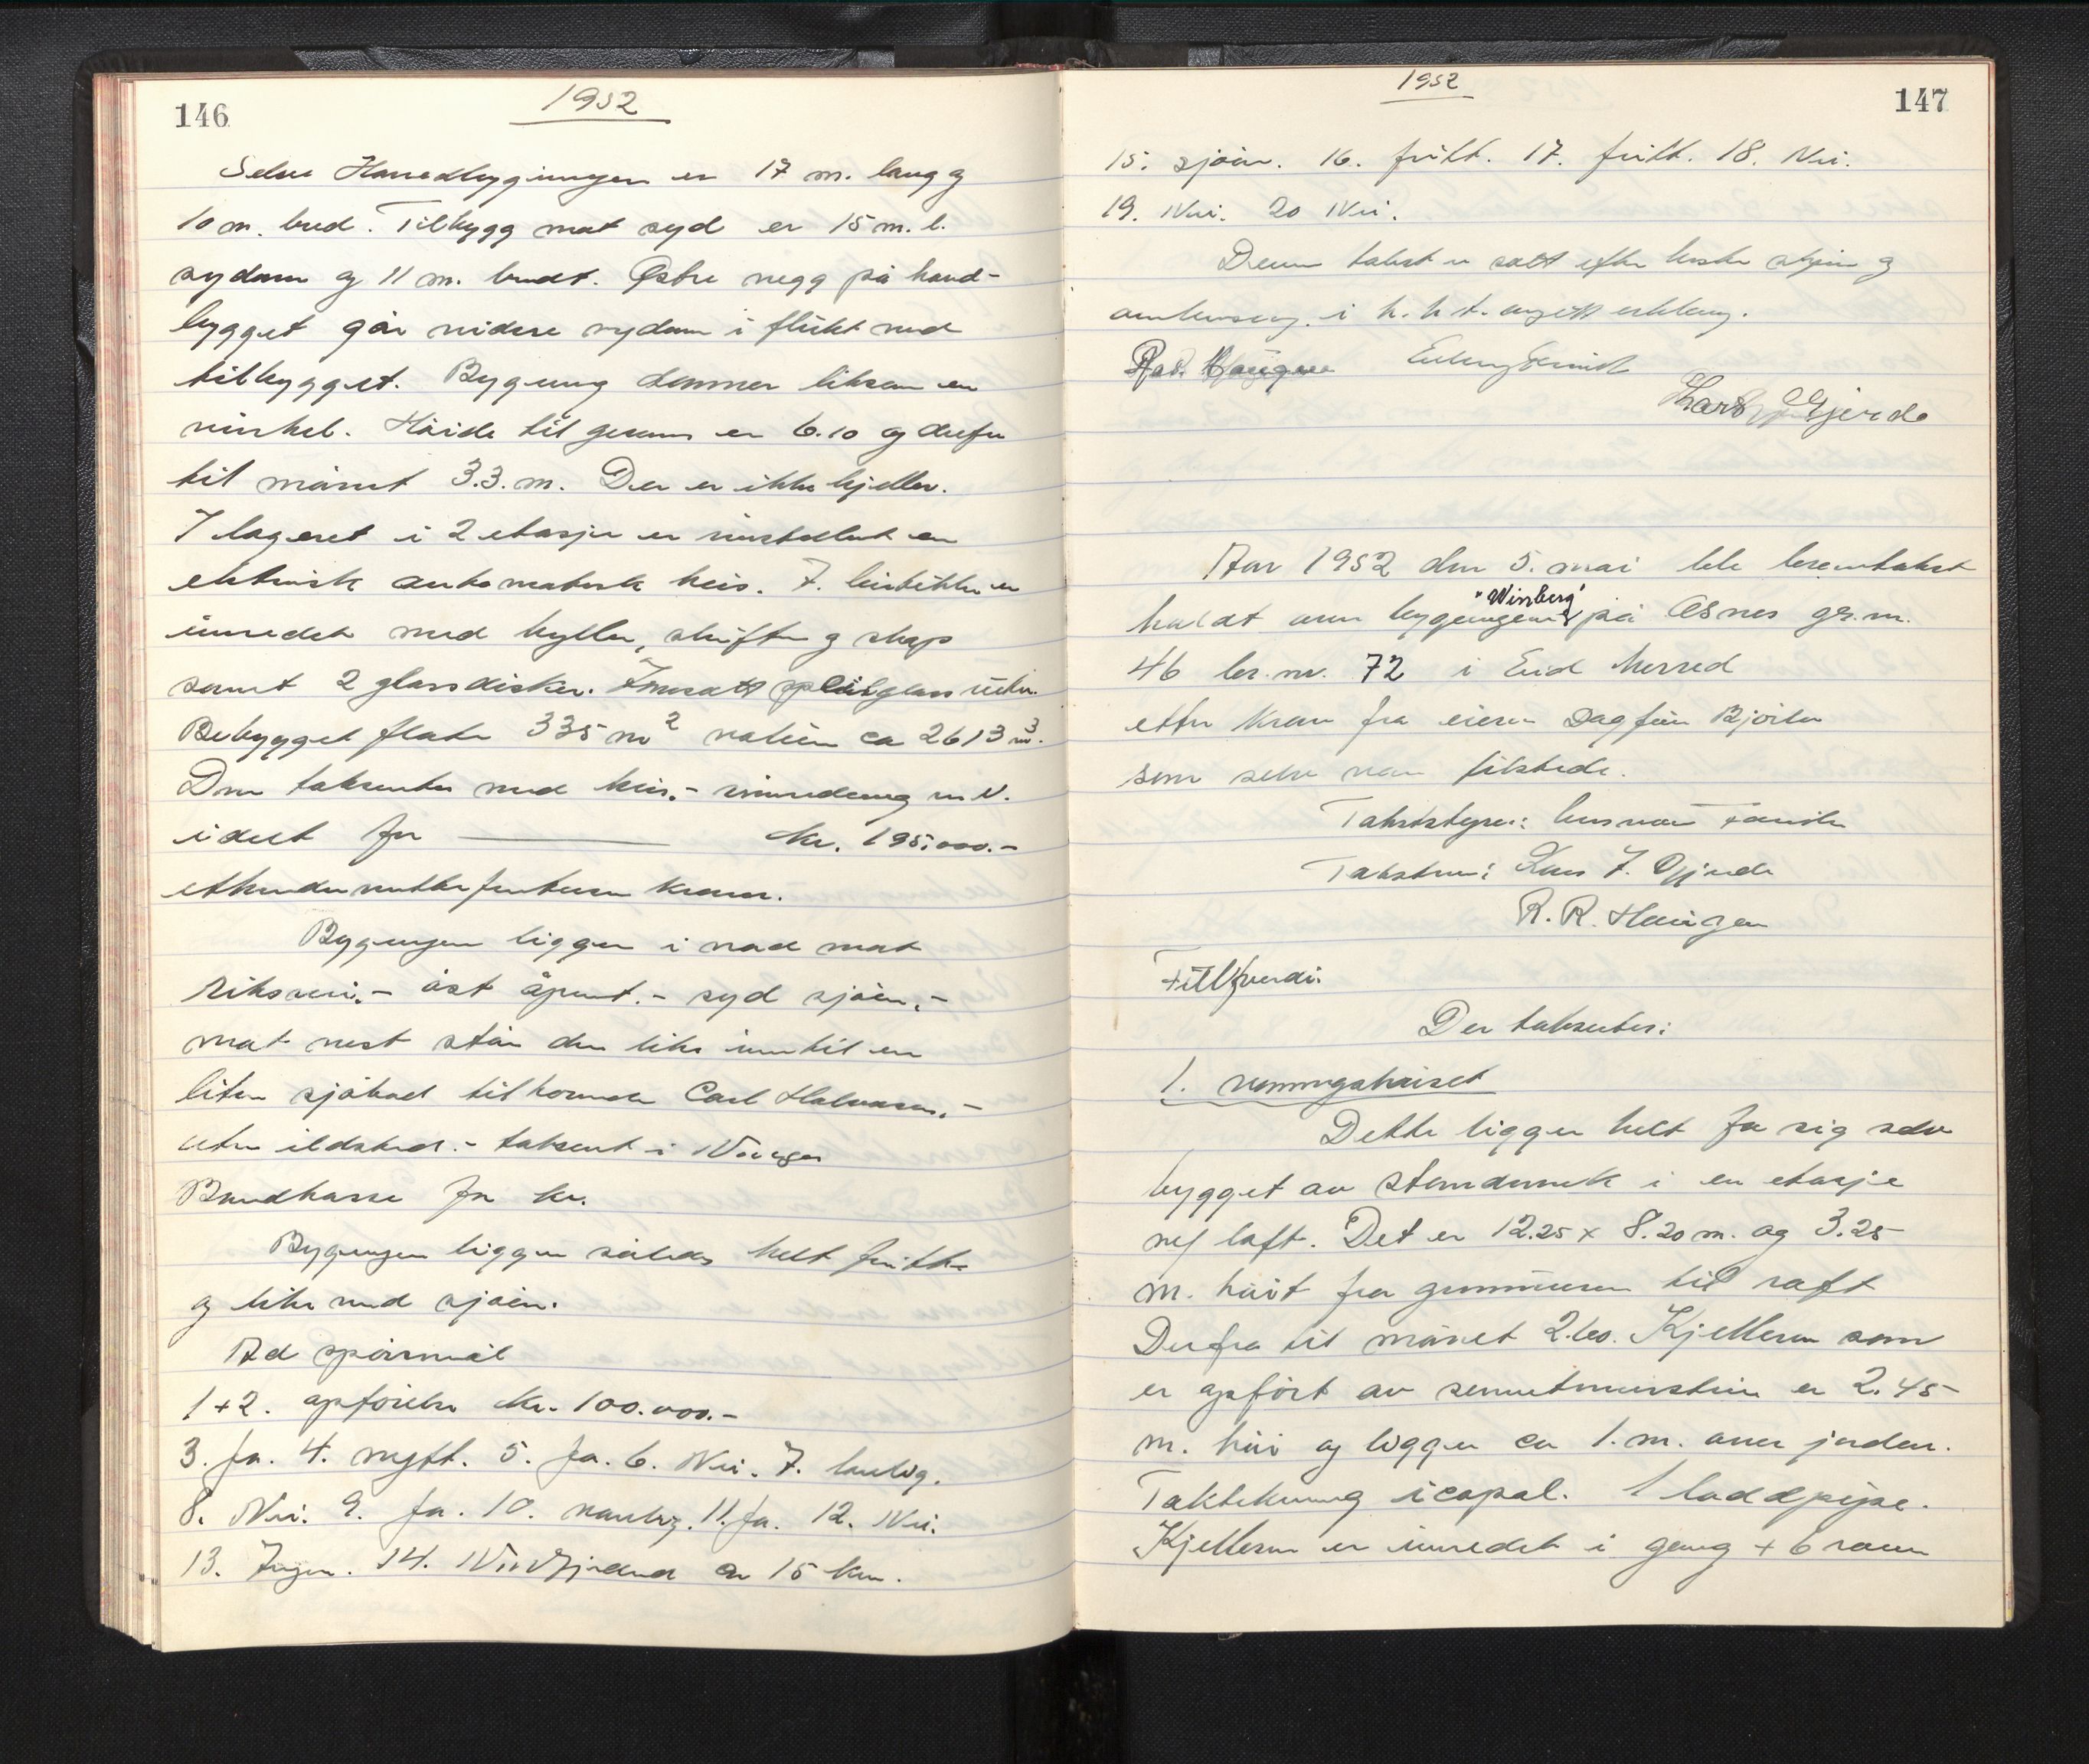 146
1952
Selve Hovedbygningen er 17 m. lang og
10 m. bred. Tilbygg mot syd er 15 m. l.
sydover og 11 m. bredt. Østre vegg på hoved-
bygget går videre sydover i flukt med
tilbygget. Bygning danner liksom en
vinkel. Höide til gesims er 6.10 og derfra
til mönet 3.3. m. Der er ikke kjeller.
I lageret i 2 etasje er installert en
elektrisk automatisk heis. I. er
innredet med hyller, skuffer og skap
samt 2 glassdisker. Innsatt speilglass
Bebygget flate 335 m² volum ca 2613 m³.
Den takseres med heis.- innredning m.v.
i det for kr. 195.000.-
ethundreognittifemtusen kroner.
Bygningen ligger i nord mot
Riksvei.- öst åpent.- syd sjöen.-
mot vest står den like inntil en
liten sjöbod tilhörende Carl Halvorsen.-
uten ildsted.- taksert i Norges
Brandkasse for kr.
Bygningen ligger således helt fritt
og like ved sjöen.
Ad spörsmål
1+2. opförelse kr. 100.000.-
3. Ja. 4. nytt. 5. Ja. 6. Nei. 7. lovlig.
8. Nei. 9. Ja. 10. vanlig. 11. Ja. 12. Nei.
13. Ingen. 14. ca 15 km.
1952
147
15. sjöen. 16. fritt. 17. fritt. 18. Nei.
19. Nei. 20 Nei.
Denne takst er satt efter beste skjön og
i h. h. t. avgitt erklæring.
Ras. Haugen
Lars J. Gjerde
Aar 1952 den 5. mai ble brantakst
holdt over bygningene "Winberg" på Osnes gr. nr.
46 br. nr. 72 i Eid herred
etter krav fra eieren Dagfinn Björlo
som selv var tilstede.
Takststyrer:
Takstmenn: Lars J. Gjerde
R. R. Haugen
Full verdi:
Der takseres:
1. vaaningshuset
Dette ligger helt for sig selv
bygget av stenderverk i en etasje
m/ loft. Det er 12.25 x 8.20 m. og 3.25
m. höit fra grunnmuren til raft
Derfra til mönet 2.60. Kjelleren som
er opfört av sementmurstein er 2.45
m. höi og ligger ca 1. m. over jorden.
Taktekning icopal. 1 loddpipe.
Kjelleren er innredet i gang + 6 room